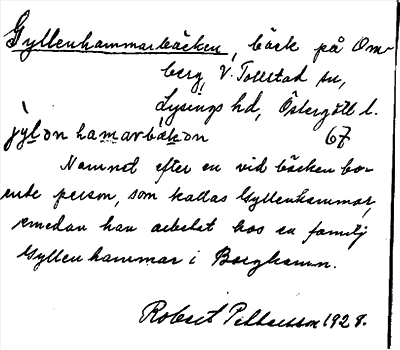 Gyllenhammarbäcken, bäck på Om-
berg, V. Tollstad sn,
Lysings hd, Östergötl l.
jỳlən hamarbäkən 67
Namnet efter en vid bäcken bo-
ende person, som kallas Gyllenhammar,
emedan han arbetat hos en familj
Gyllenhammar i Borghamn.
Robert Pettersson 1928.